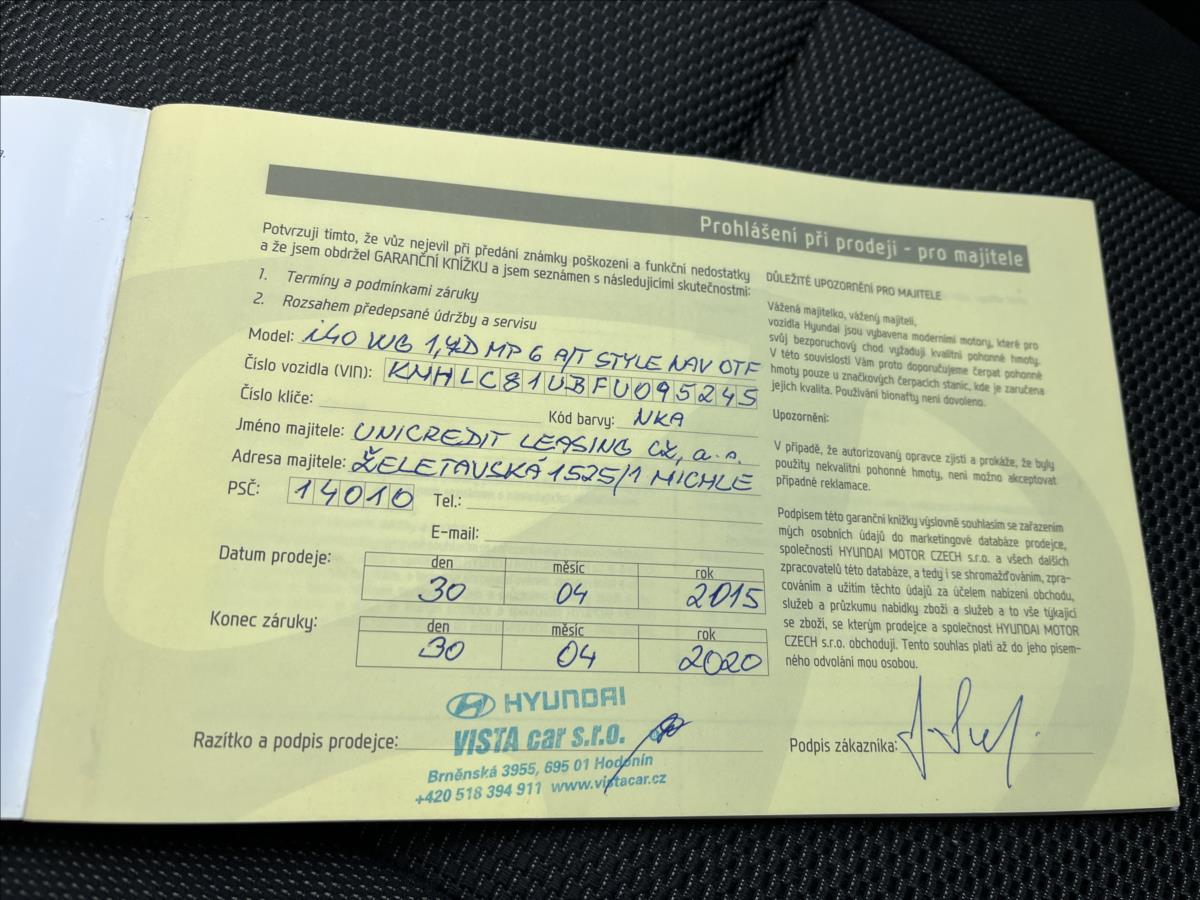 Prohlášení při prodeji - pro majitele
Potvrzuji timto, že vůz nejevil při předání známky poškozeni a funkční nedostatky
a že jsem obdržel GARANČNÍ KNÍŽKU a jsem seznámen s následujícimi skutečnostmi:
1. Termíny a podmínkami záruky
2. Rozsahem předepsané údržby a servisu
Model: i40 WG 1,7D MP 6 A/T STYLE NAV OTF
Číslo vozidla (VIN): KMHLC81UBFU095245
Číslo klíče:
Kód barvy: NKA
Jméno majitele: UNICREDIT LEASING CZ, a.s.
Adresa majitele: ŽELETAVSKÁ 1525/1 MICHLE
PSČ: 14010 Tel.:
E-mail:
Datum prodeje: den měsíc rok
30 04 2015
Konec záruky: den měsíc rok
30 04 2020
HYUNDAI
VISTA car s.r.o.
Razítko a podpis prodejce:
Brněnská 3955, 695 01 Hodonín
+420 518 394 911 www.vistacar.cz
DŮLEŽITÉ UPOZORNĚNÍ PRO MAJITELE
Vážená majitelko, vážený majiteli,
vozidla Hyundai jsou vybavena moderními motory, které pro
svůj bezporuchový chod vyžadují kvalitni pohonné hmoty.
V této souvislosti Vám proto doporučujeme čerpat pohonné
hmoty pouze u značkových čerpacích stanic, kde je zaručena
jejich kvalita. Používání bionafty není dovoleno.
Upozornění:
V případě, že autorizovaný opravce zjistí a prokáže, že byly
použity nekvalitní pohonné hmoty, není možno akceptovat
případné reklamace.
Podpisem této garanční knížky výslovně souhlasím se zařazením
mých osobních údajů do marketingové databáze prodejce,
společnosti HYUNDAI MOTOR CZECH s.r.o. a všech dalších
zpracovatelů této databáze, a tedy i se shromažďováním, zpra-
cováním a užitím těchto údajů za účelem nabízení obchodu,
služeb a průzkumu nabídky zboži a služeb a to vše týkající
se zboží, se kterým prodejce a společnost HYUNDAI MOTOR
CZECH s.r.o. obchodují. Tento souhlas platí až do jeho písem-
ného odvolání mou osobou.
Podpis zákazníka: